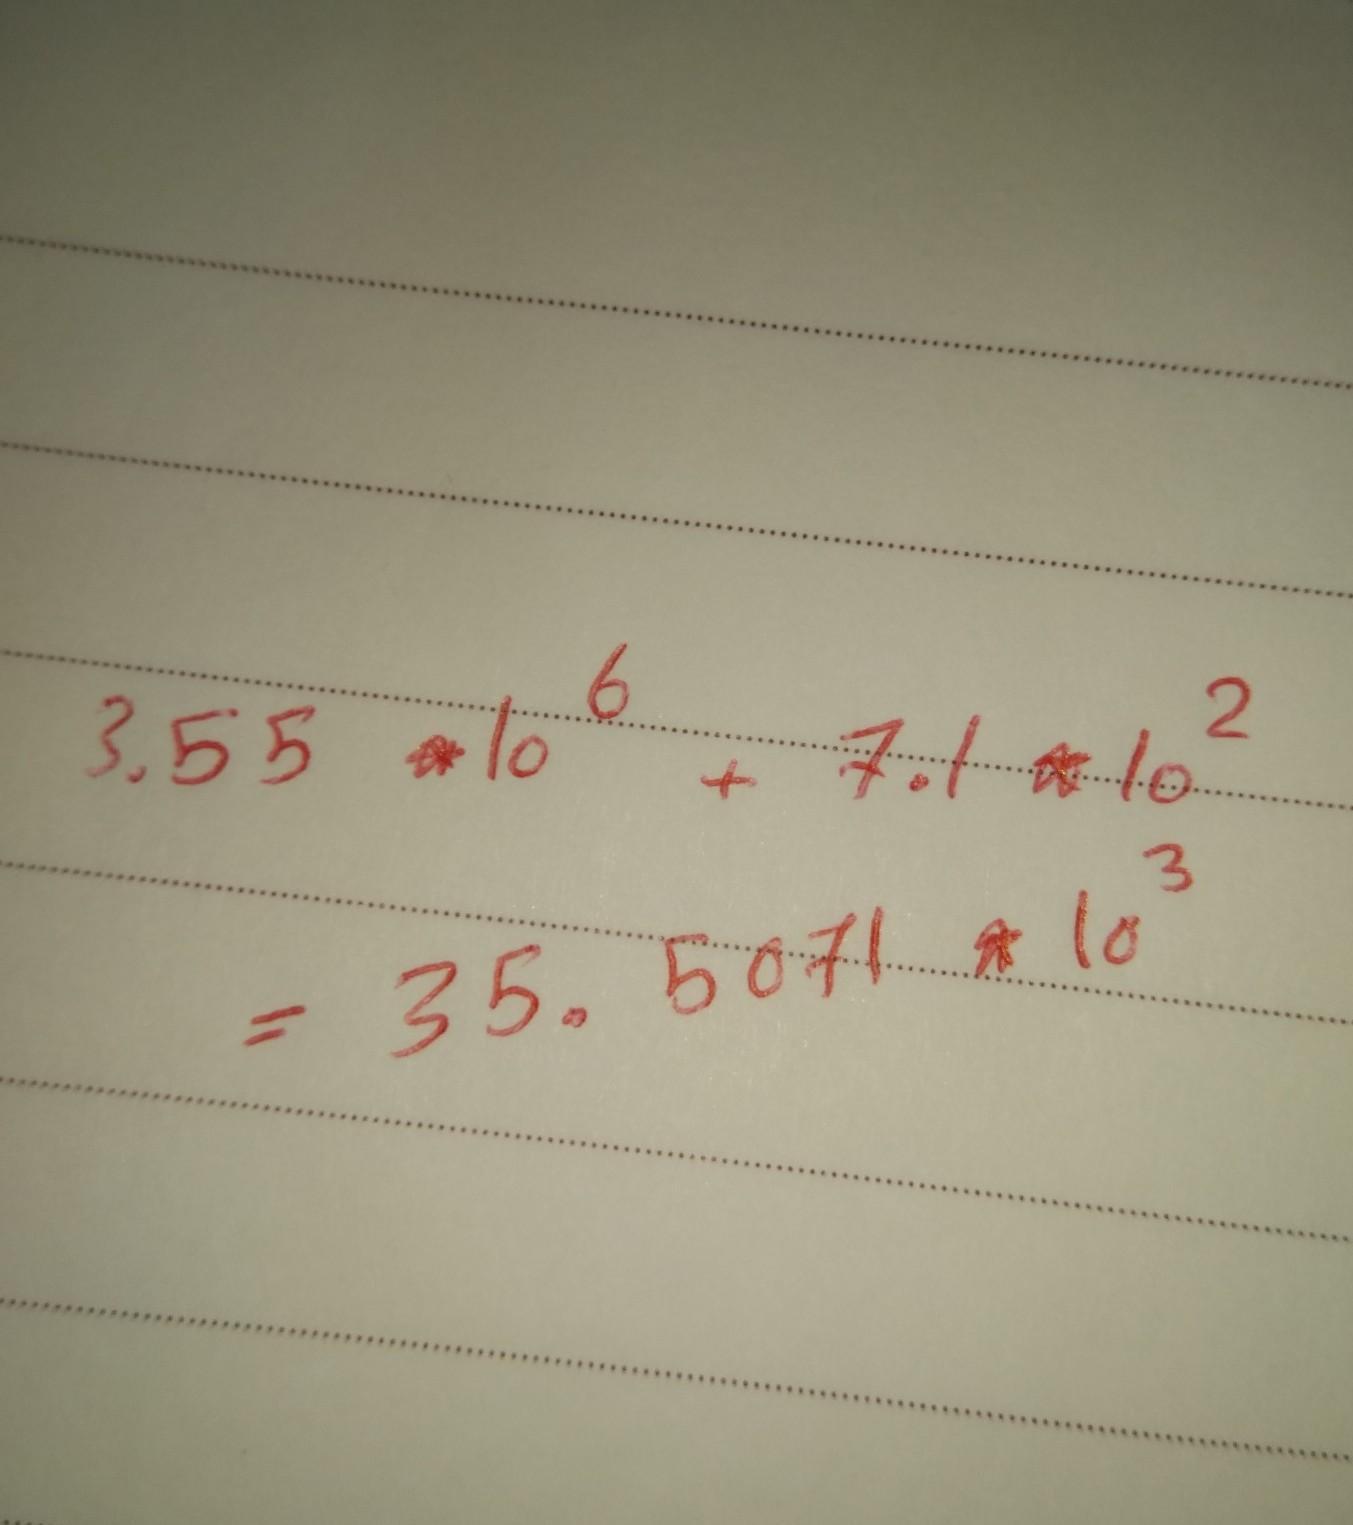 3.55 * 10⁶ + 7.1 * 10²
= 35.5071 * 10³